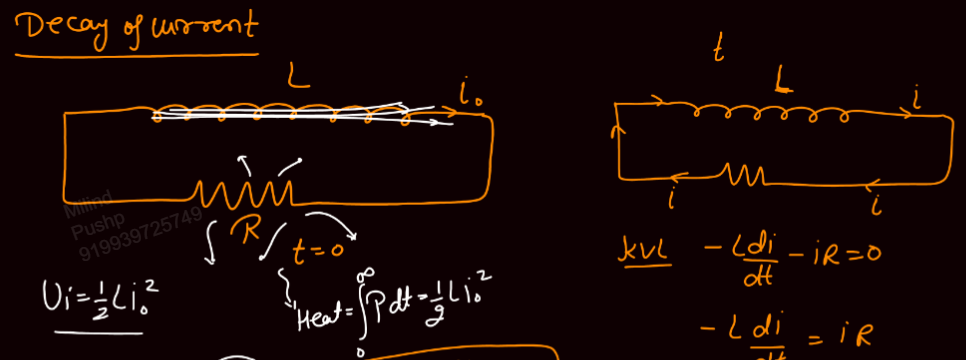 Decay of current
t
L
i₀
L
i
R
t=0
i
i
Milind
Pushp
919939725749
Ui=½Li₀²
Heat=∫₀^∞ Pdt=½Li₀²
KVL -Ldi/dt - iR=0
-Ldi/dt = iR